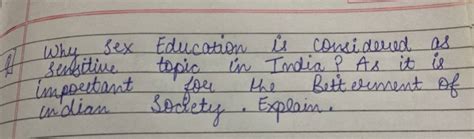 Why Sex Education is considered as
sensitive topic in India? As it is
important for the Betterment of
indian Society. Explain.